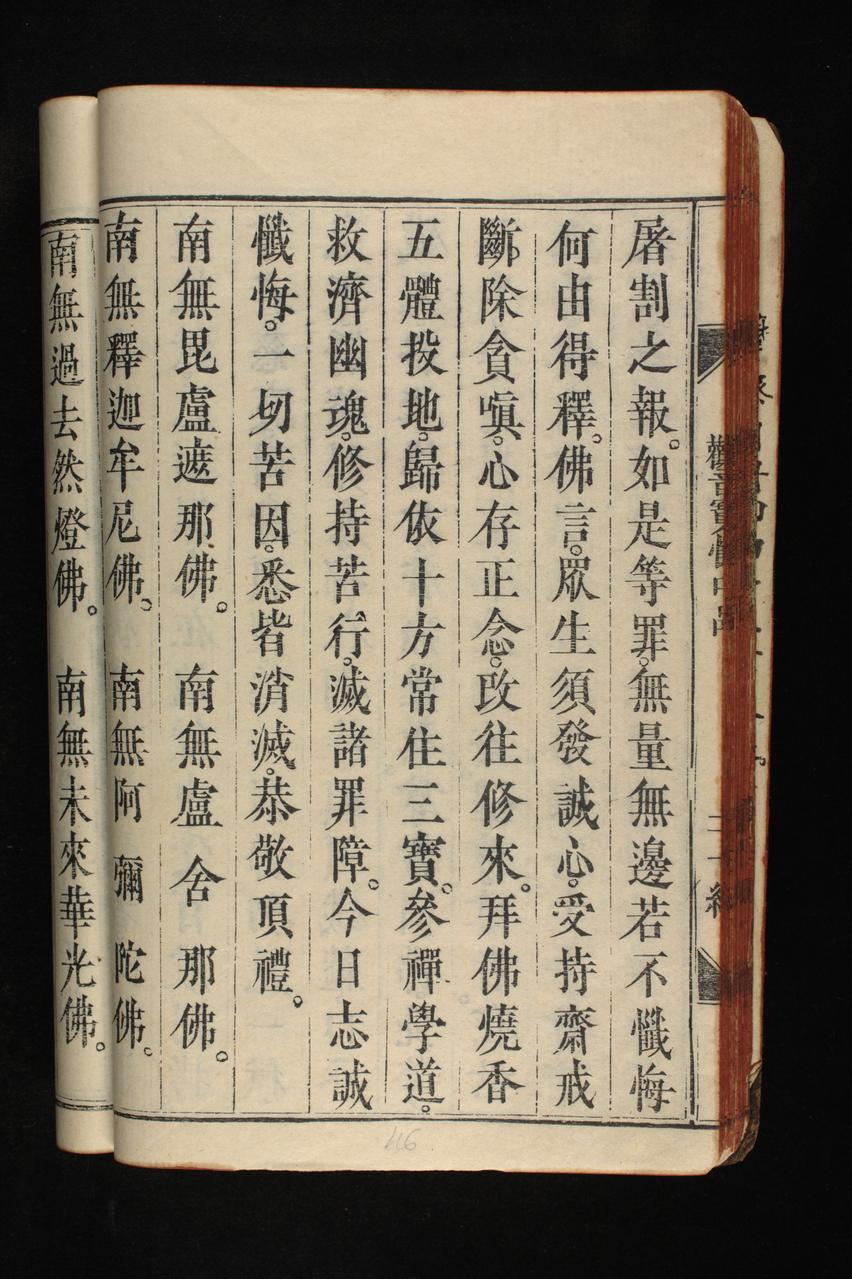 屠割之報。如是等罪。無量無邊若不懺悔
何由得釋。佛言。眾生須發誠心。受持齋戒
斷除貪嗔。心存正念。改往修來。拜佛燒香
五體投地。歸依十方常住三寶。參禪學道。
救濟幽魂。修持苦行。滅諸罪障。今日志誠
懺悔。一切苦因。悉皆消滅。恭敬頂禮。
南無毘盧遮那佛。 南無盧舍那佛。
南無釋迦牟尼佛。 南無阿彌陀佛。
南無過去然燈佛。 南無未來華光佛。
46